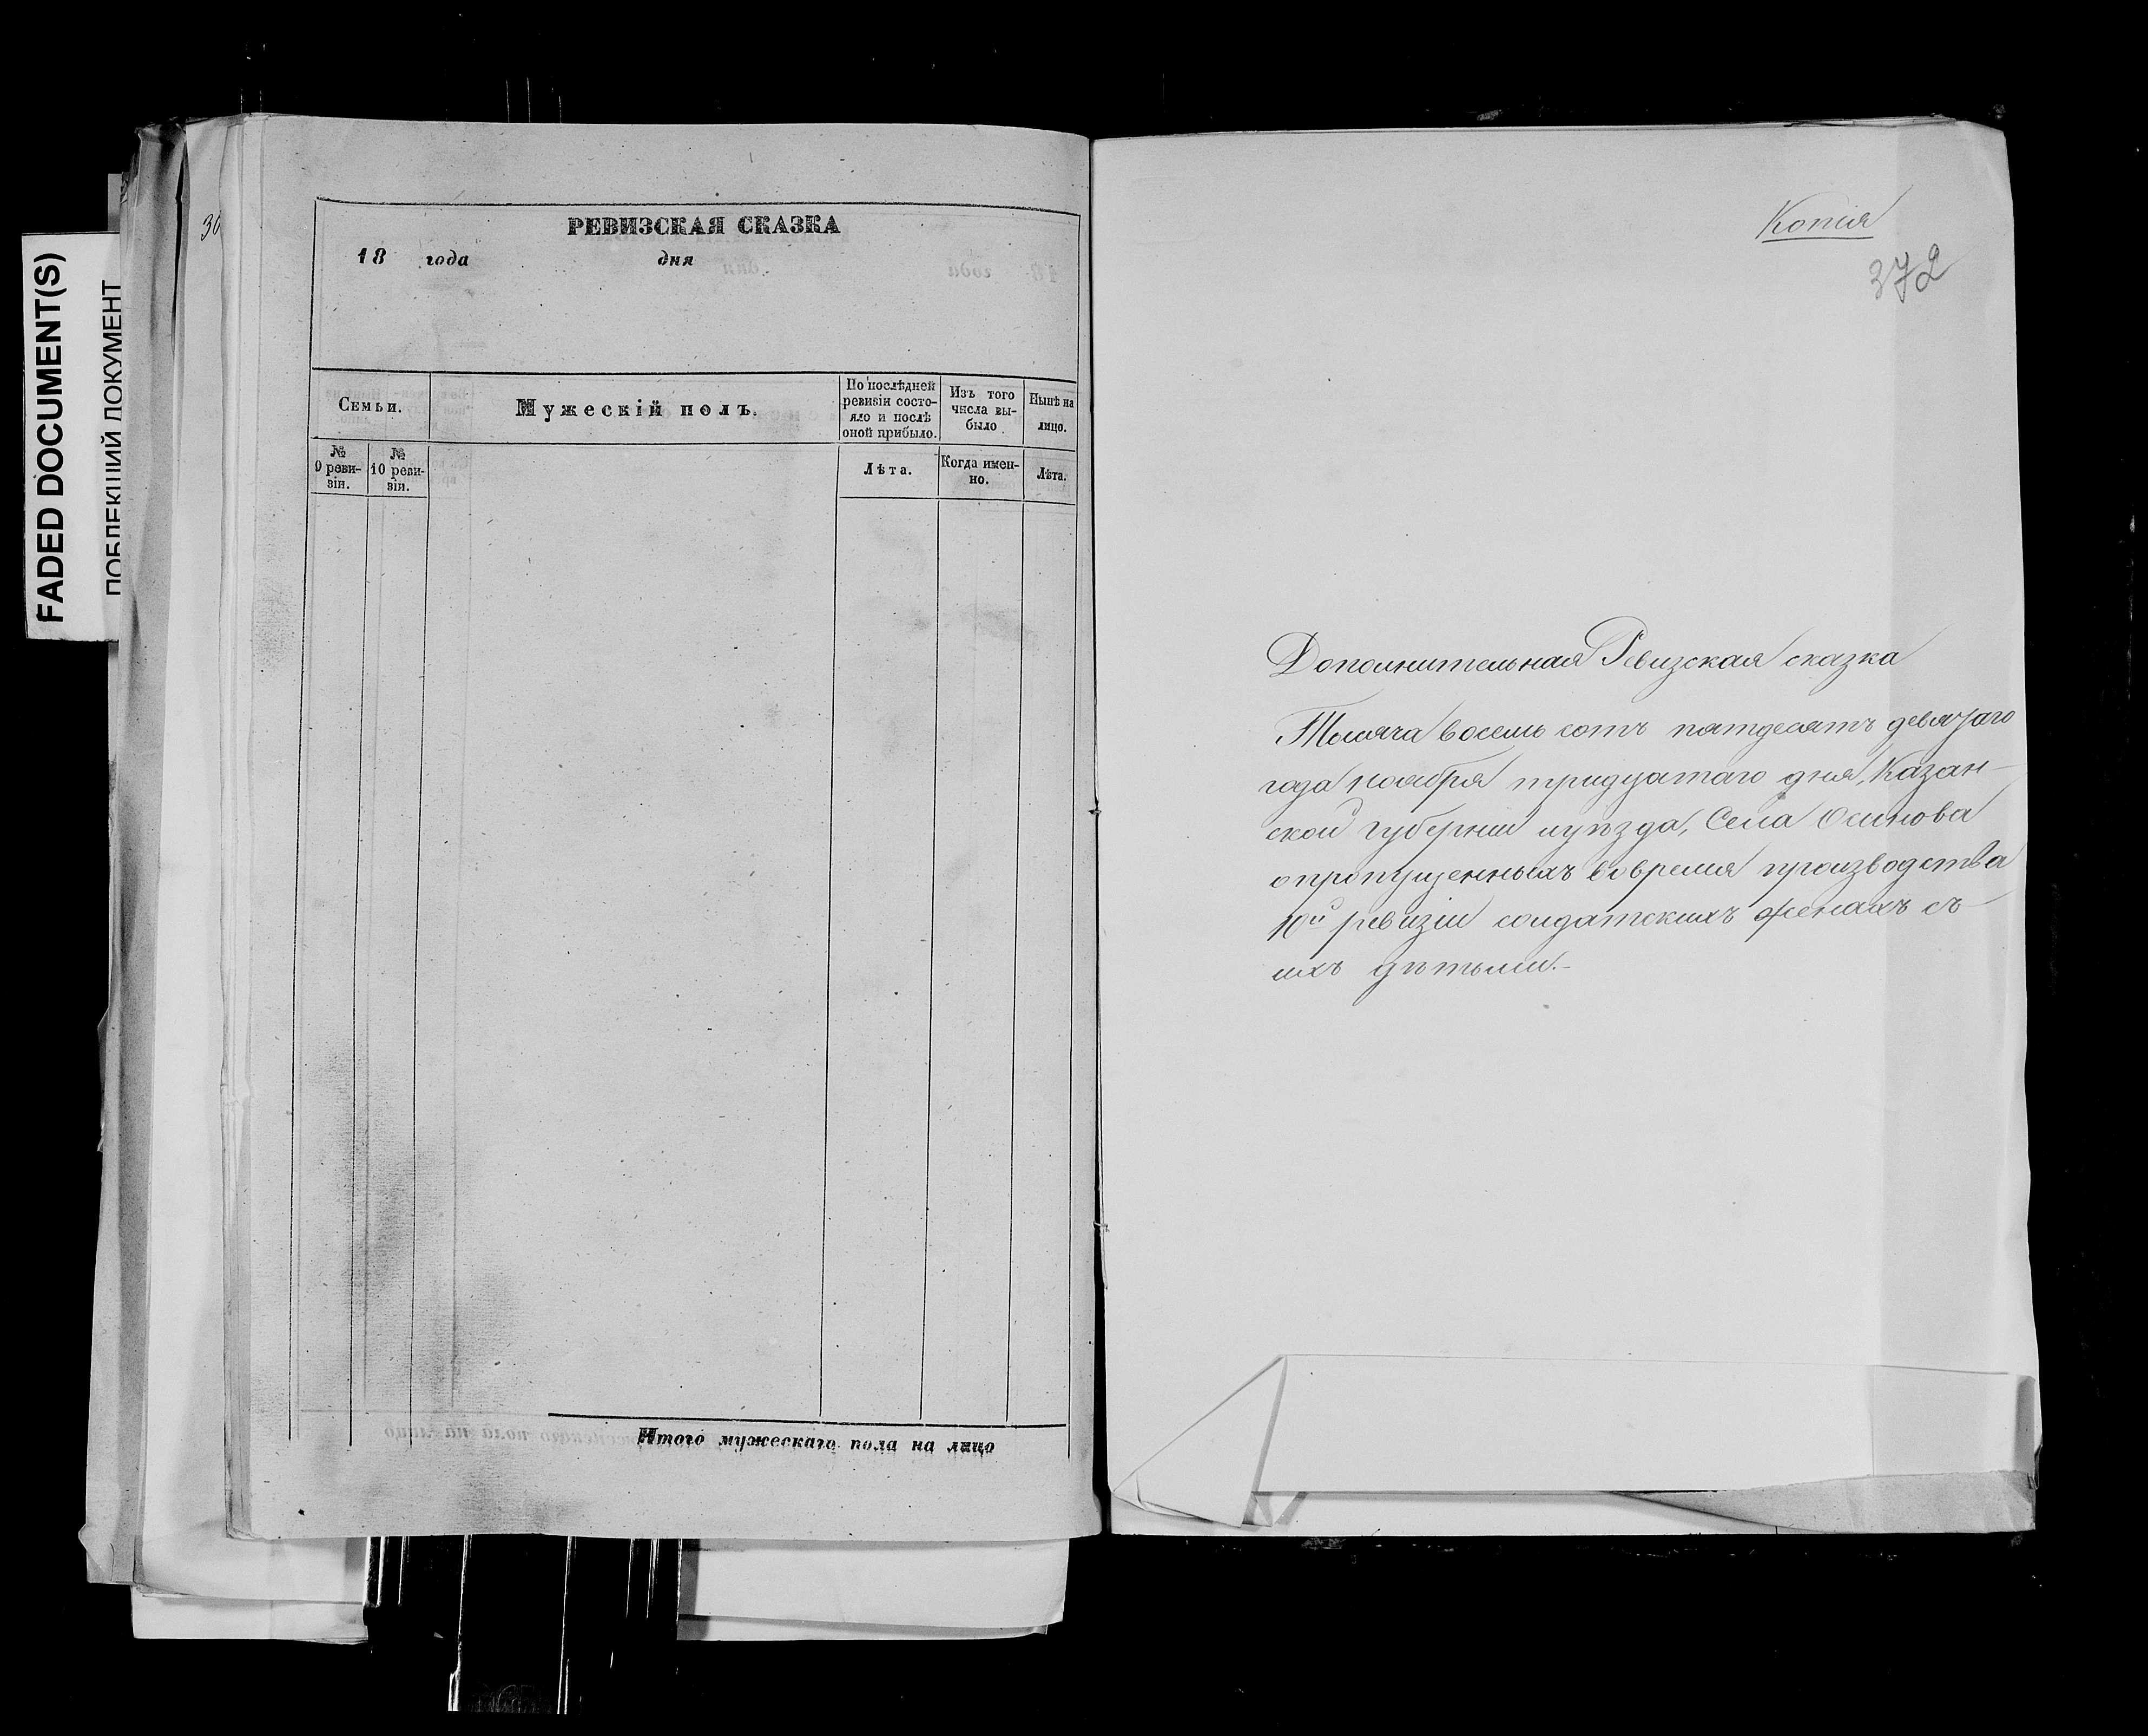 FADED DOCUMENT(S)
ПОБЛЕКШИЙ ДОКУМЕНТ
РЕВИЗСКАЯ СКАЗКА
18 года дня
Семьи.
Мужескій полъ.
По послѣдней
ревизіи состо-
яло и послѣ
оной прибыло.
Изъ того
числа вы-
было
Нынѣ на
лицо.
№
9 реви-
зіи.
№
10 реви-
зіи.
Лѣта.
Когда имен-
но.
Лѣта.
Итого мужескаго пола на лицо
Копія
372
Дополнительная Ревизская сказка
Тысяча восемь сотъ пятдесятъ девятаго
года ноября тридцатаго дня, Казан-
ской губерніи иуѣзда, Села Осинова
опропущенныхъ вовремя производства
10й ревизіи солдатскихъ женахъ съ
ихъ дѣтьми.-